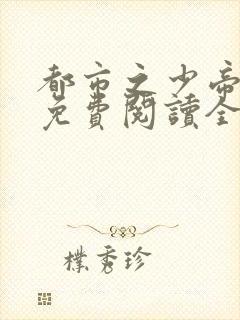 都市之少帝
免費閱讀全
樸秀珍